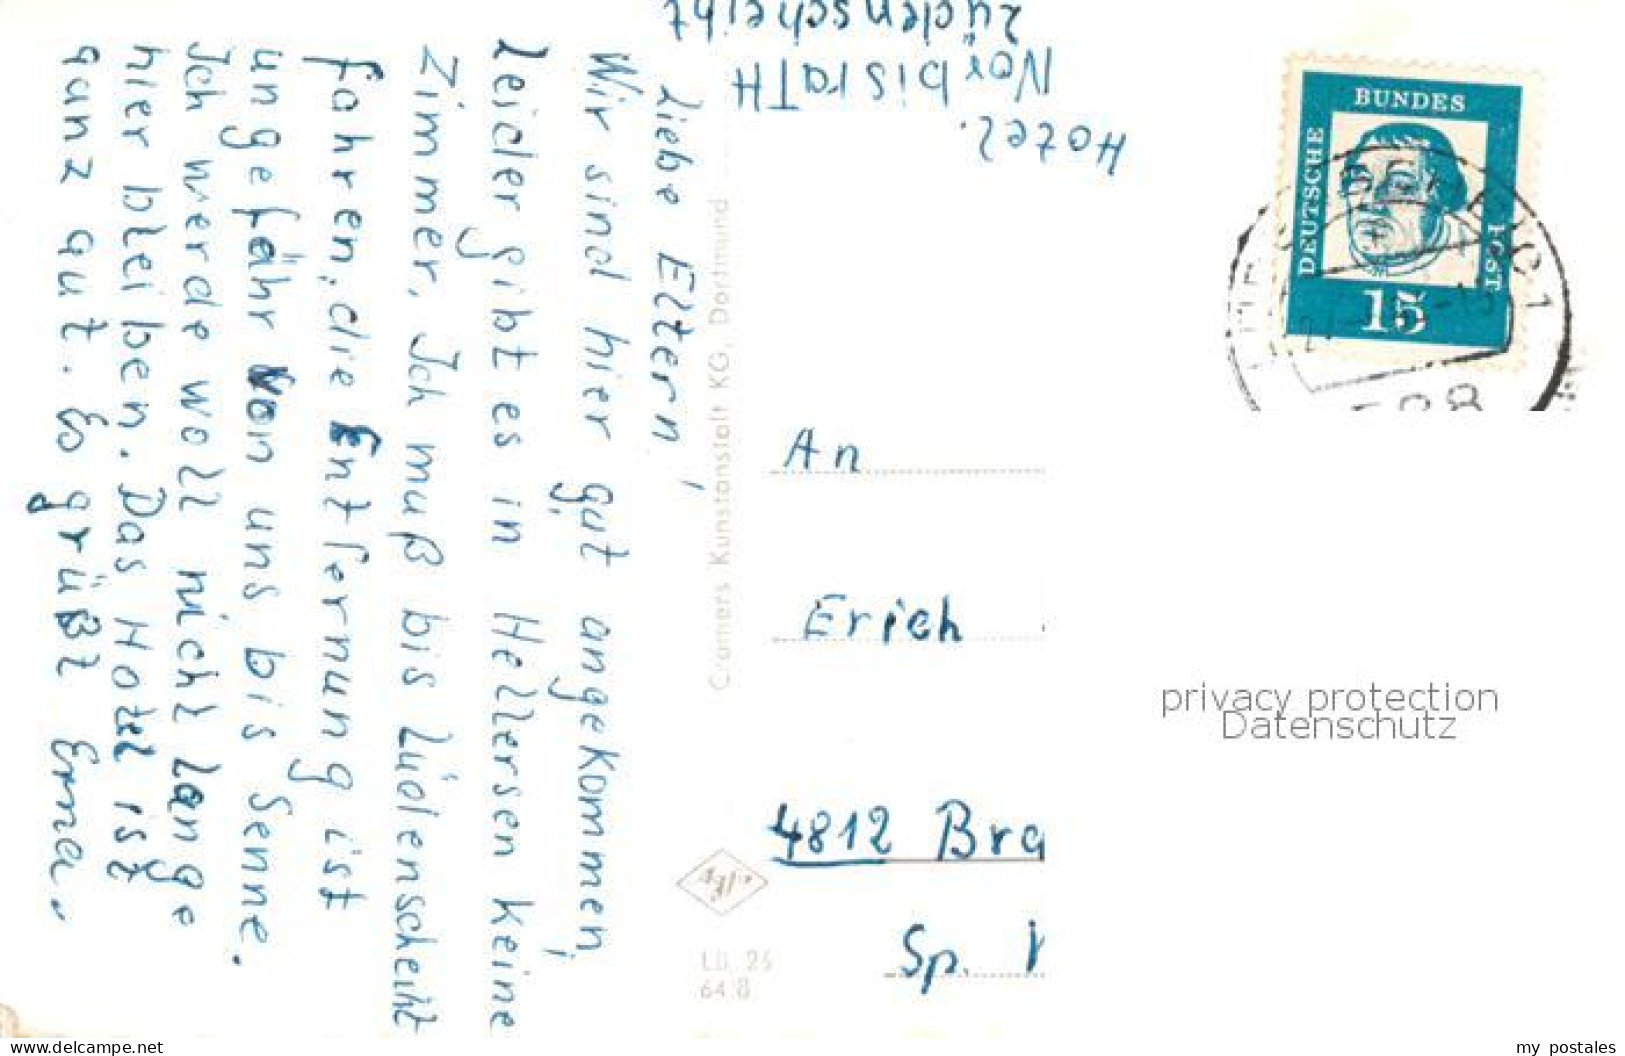 Hotel.
Norbisrath
Lüdenscheidt
Liebe Eltern
Wir sind hier gut angekommen,
leider gibt es in Hellersen keine
Zimmer. Ich muß bis Lüdenscheidt
fahren, die Entfernung ist
ungefähr von uns bis Senne.
Ich werde woll nicht lange
hier bleiben. Das Hotel ist
ganz gut. Es grüßt Erna.
Cramers Kunstanstalt KG, Dortmund
Agfa
LÜ. 25
64 8
DEUTSCHE
BUNDES
POST
15
An
Erich
4812 Bra
Sp.
privacy protection
Datenschutz
www.delcampe.net
my_postales